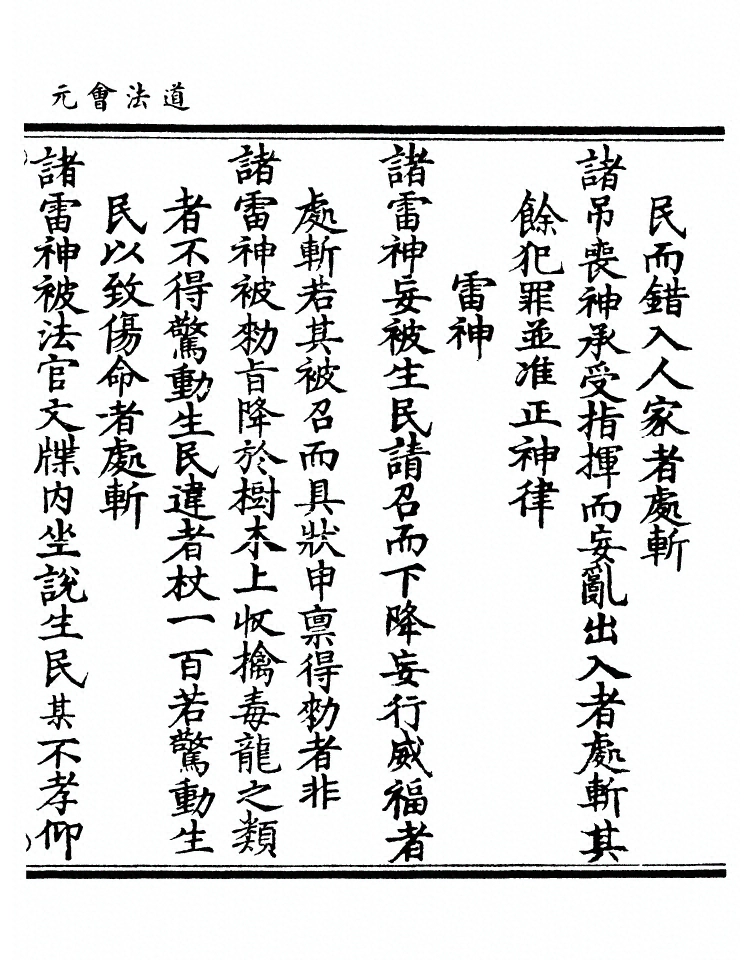 道法會元
民而錯入人家者處斬
諸吊喪神承受指揮而妄亂出入者處斬其
餘犯罪並准正神律
雷神
諸雷神妄被生民請召而下降妄行威福者
處斬若其被召而具狀申禀得勑者非
諸雷神被勑旨降於樹木上收擒毒龍之類
者不得驚動生民違者杖一百若驚動生
民以致傷命者處斬
諸雷神被法官文牒内坐說生民某不孝仰